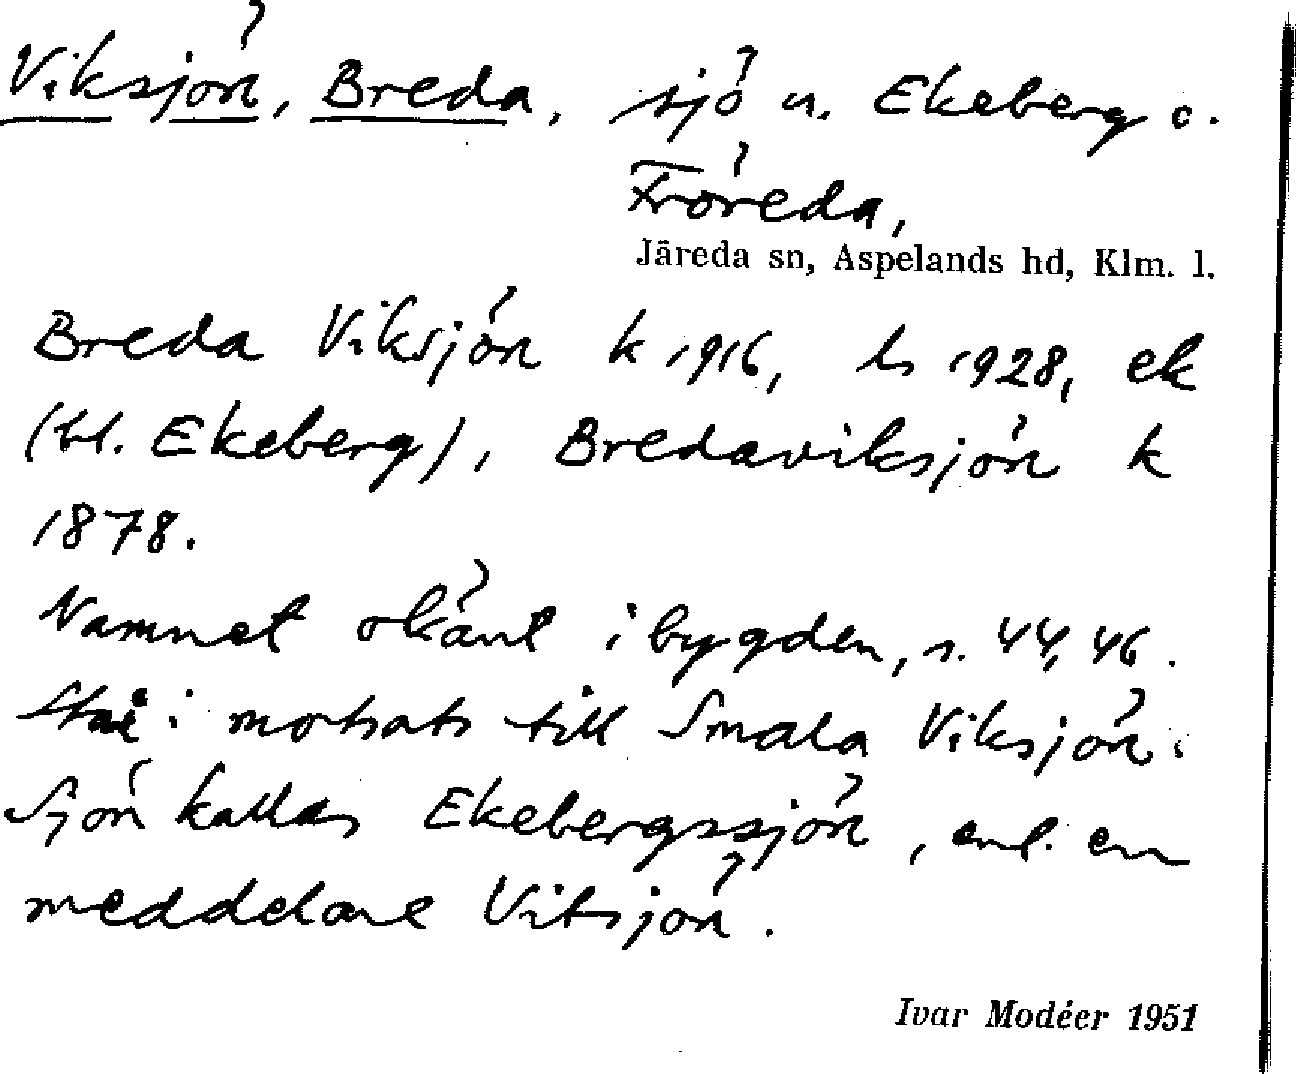 Viksjön, Breda, sjö u. Ekeberg o.
Fröreda,
Järeda sn, Aspelands hd, Klm. l.
Breda Viksjön k 1916, hs 1928, ek
(bl. Ekeberg), Bredaviksjön k
1878.
Namnet okänt i bygden, s. 44, 46.
i motsats till Smala Viksjön.
Sjön kallas Ekebergssjön, enl. en
meddelare Vitsjön.
Ivar Modéer 1951